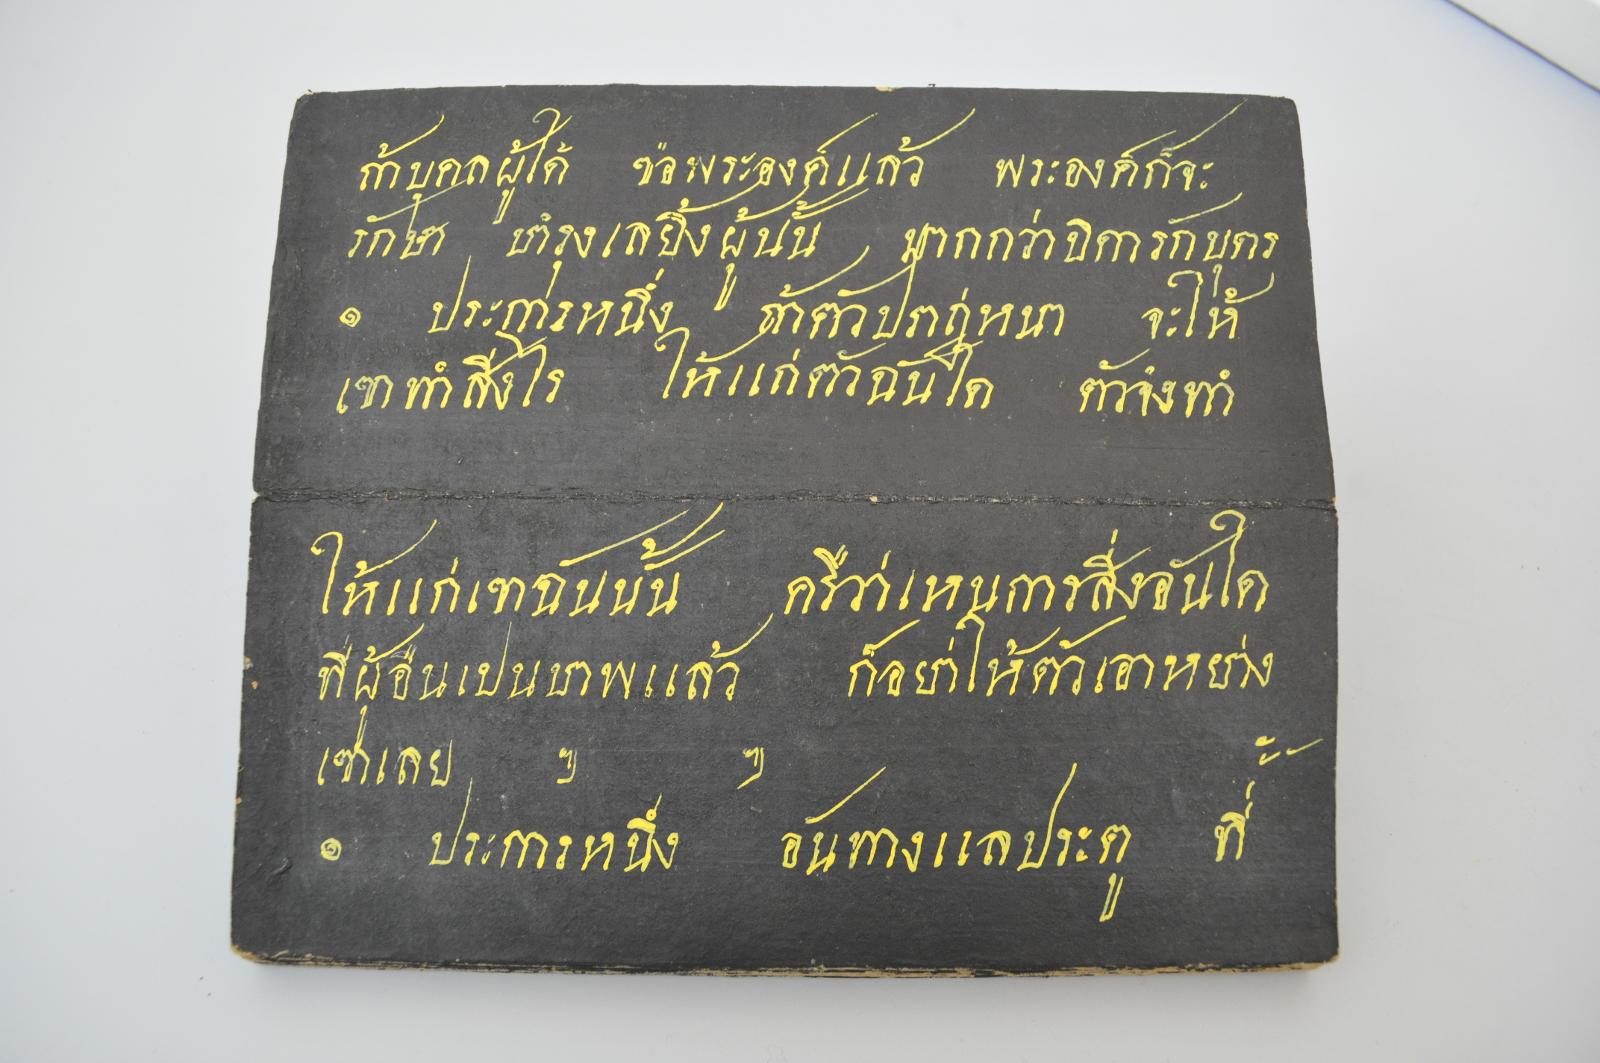 ถ้าบุคลผู้ได้ ซ่อพระองค์แล้ว พระองค์ก็จะ
รักษา บำรุงเลยี้งผู้นั้น มากกว่าบิดารักบุตร
๑ ประการหนึ่ง ถ้าตัวปราถนา จะให้
เขาทำสิ่งไร ให้แก่ตัวฉันใด ตัวจ่งทำ
ให้แก่เขาฉันนั้น ครั้ว่าเหนการสิ่งอันใด
ที่ผู้อื่นเปนบาพแล้ว ก็อย่าให้ตัวเอาหย่าง
เขาเลย ๆ ๆ
๑ ประการหนึ่ง อันทางแลประตู ที่